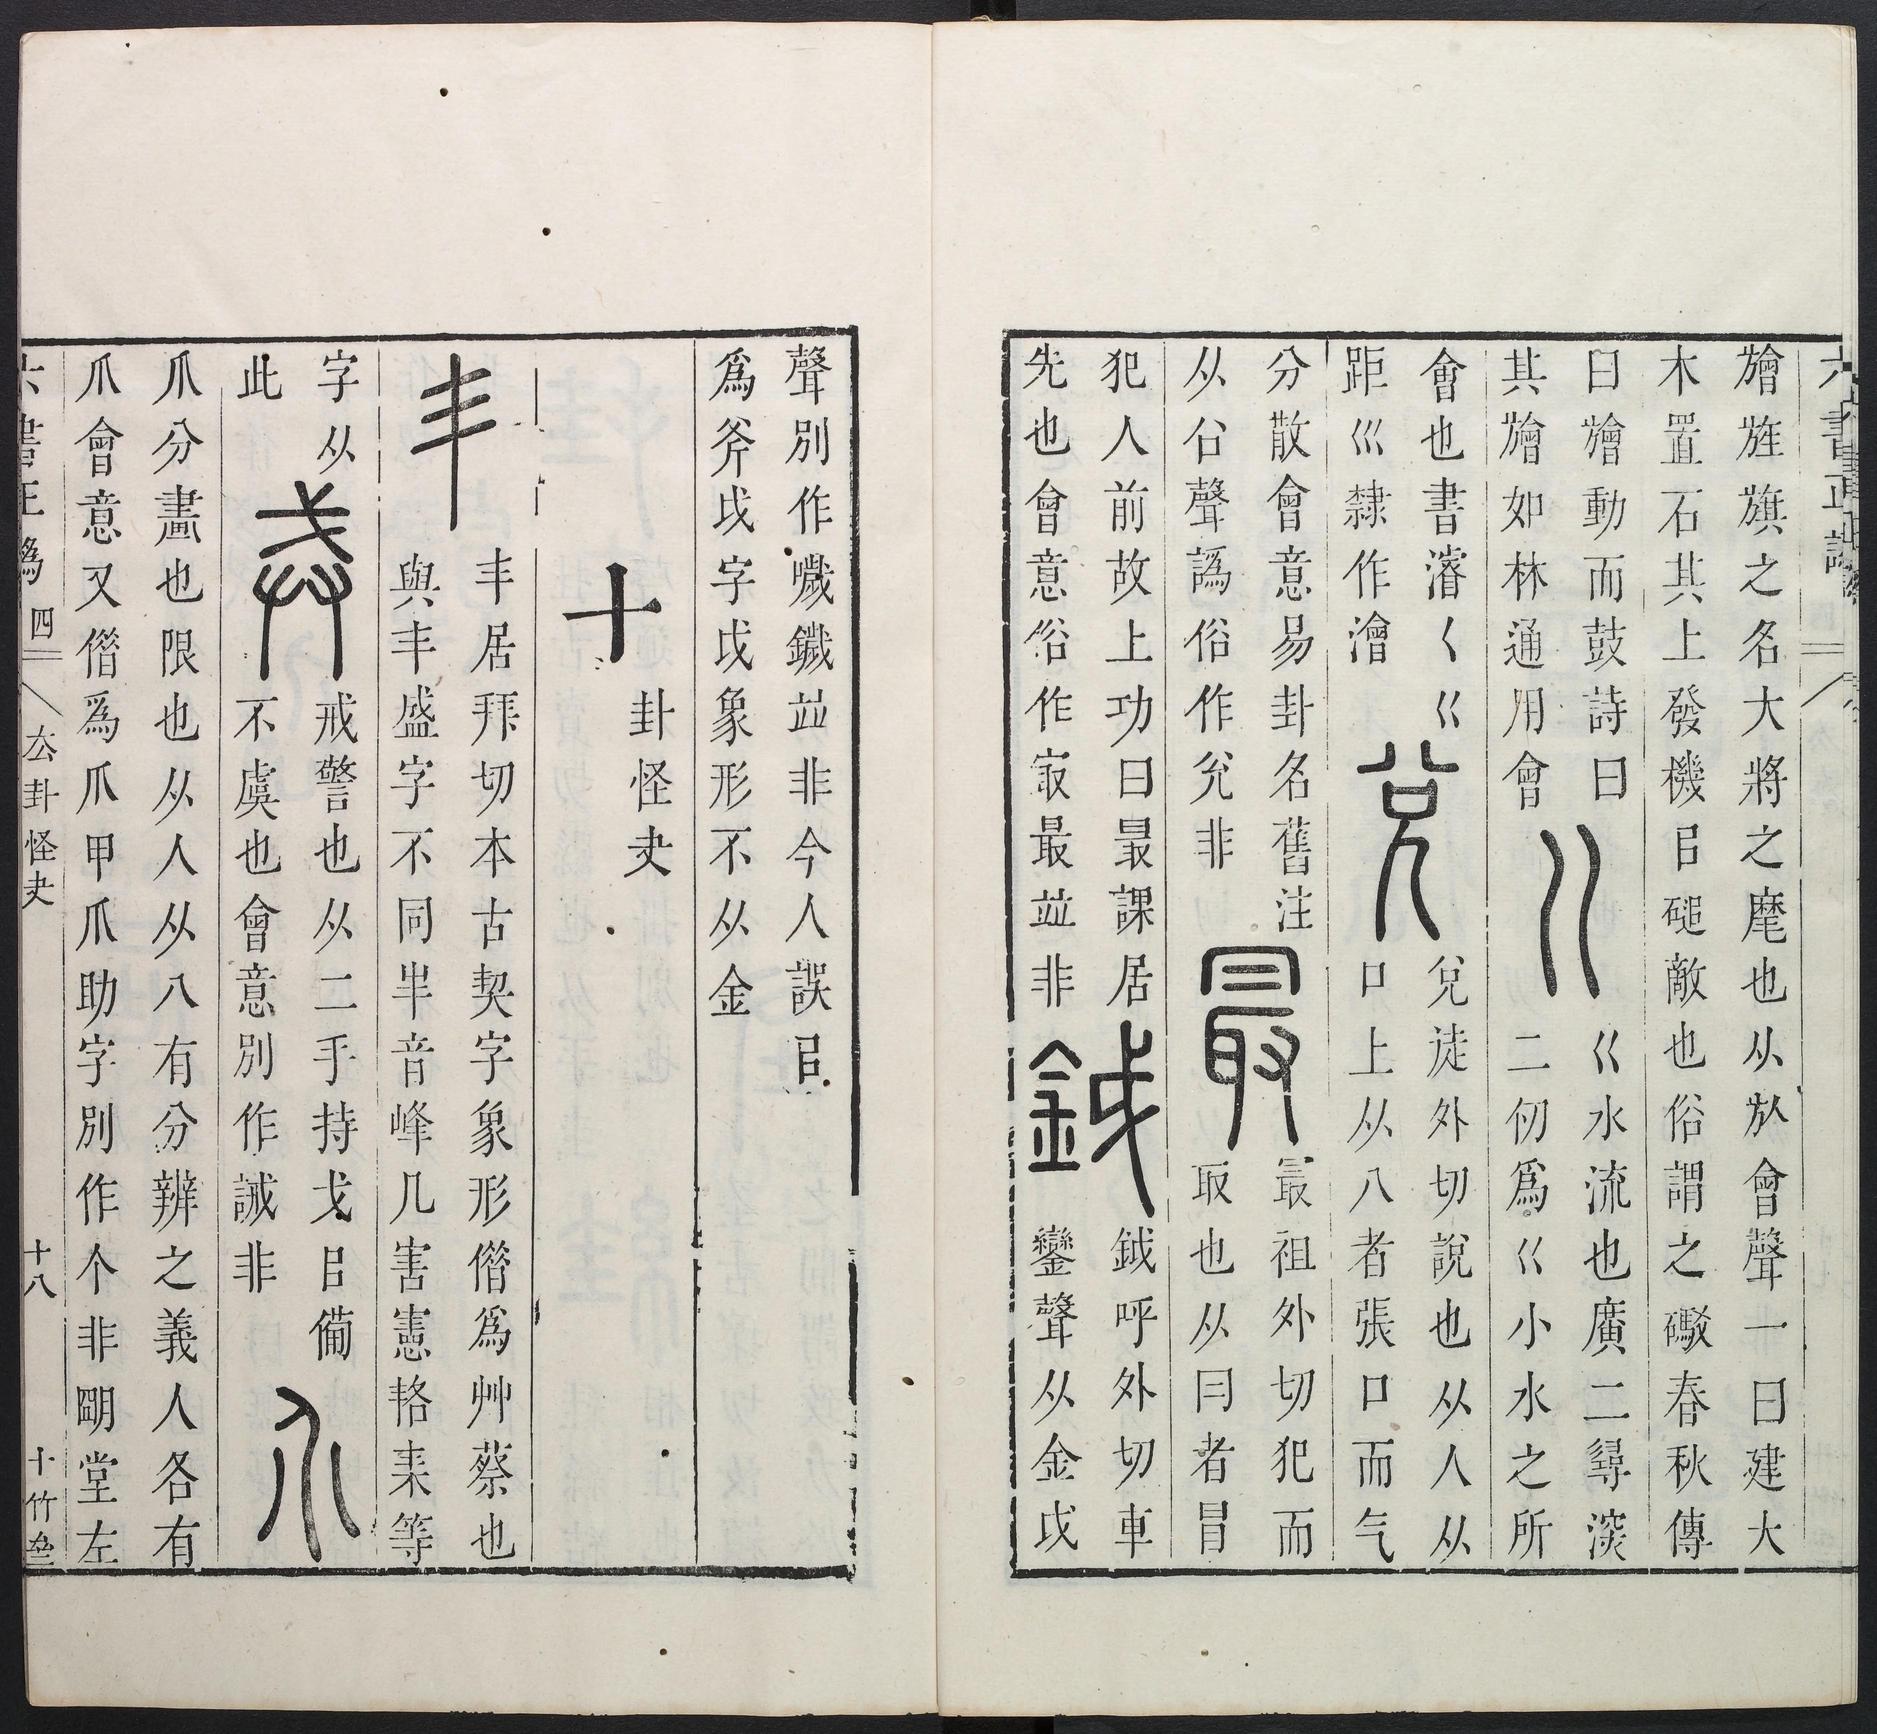 六書正譌
旝旌旗之名大將之麾也从㫃會聲一曰建大
木置石其上發機㠯磓敵也俗謂之礮春秋傳
曰旝動而鼓詩曰
其旝如林通用會
巜
巜水流也廣二尋深
二仞爲巜小水之所
會也書濬〈巜
距巛隸作澮
兌
兌徒外切說也从人从
口上从八者張口而气
分散會意易卦名舊注
从㕣聲譌俗作兊非
最
最祖外切犯而
取也从冃者冒
犯人前故上功曰最課居
先也會意俗作㝡最並非
鉞
鉞呼外切車
鑾聲从金戉
聲別作噦鐬並非今人誤㠯
爲斧戉字戉象形不从金
十
卦怪夬
丰
丯居拜切本古契字象形僭爲艸蔡也
與丰盛字不同半音峰几害憲輅耒等
字从
此
戒
戒警也从二手持戈㠯備
不虞也會意別作誡非
㸚
爪分畫也限也从人从八有分辨之義人各有
爪會意又僭爲爪甲爪助字別作个非朙堂左
六書正譌 四 厺卦怪夬 十八 十竹